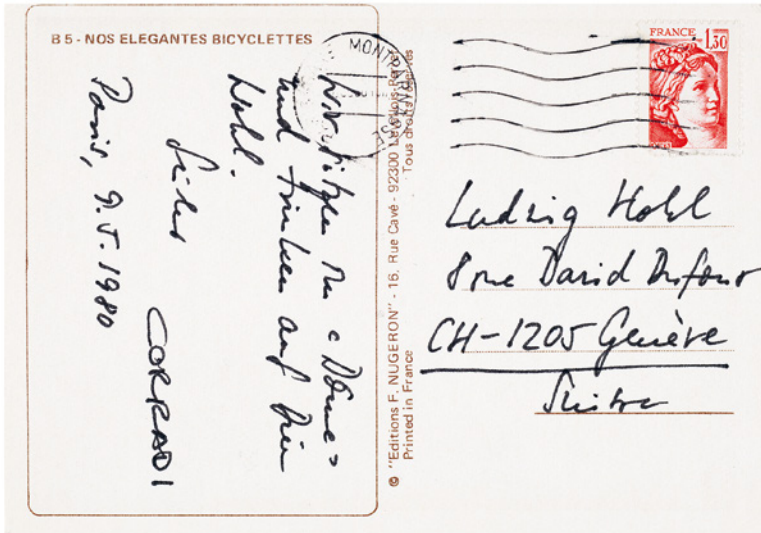 B 5 - NOS ELEGANTES BICYCLETTES
Wir sitzen im «Dôme»
und trinken auf Dein
Wohl.
CORRADI
Paris, 9.5.1980
© "Editions F. NUGERON" - 16, Rue Cavé - 92300 Levallois-Perret
Printed in France Tous droits réservés
MONTPARNASSE
FRANCE 1,30
Ludwig Hohl
8 rue David Dufour
CH-1205 Genève
Suisse